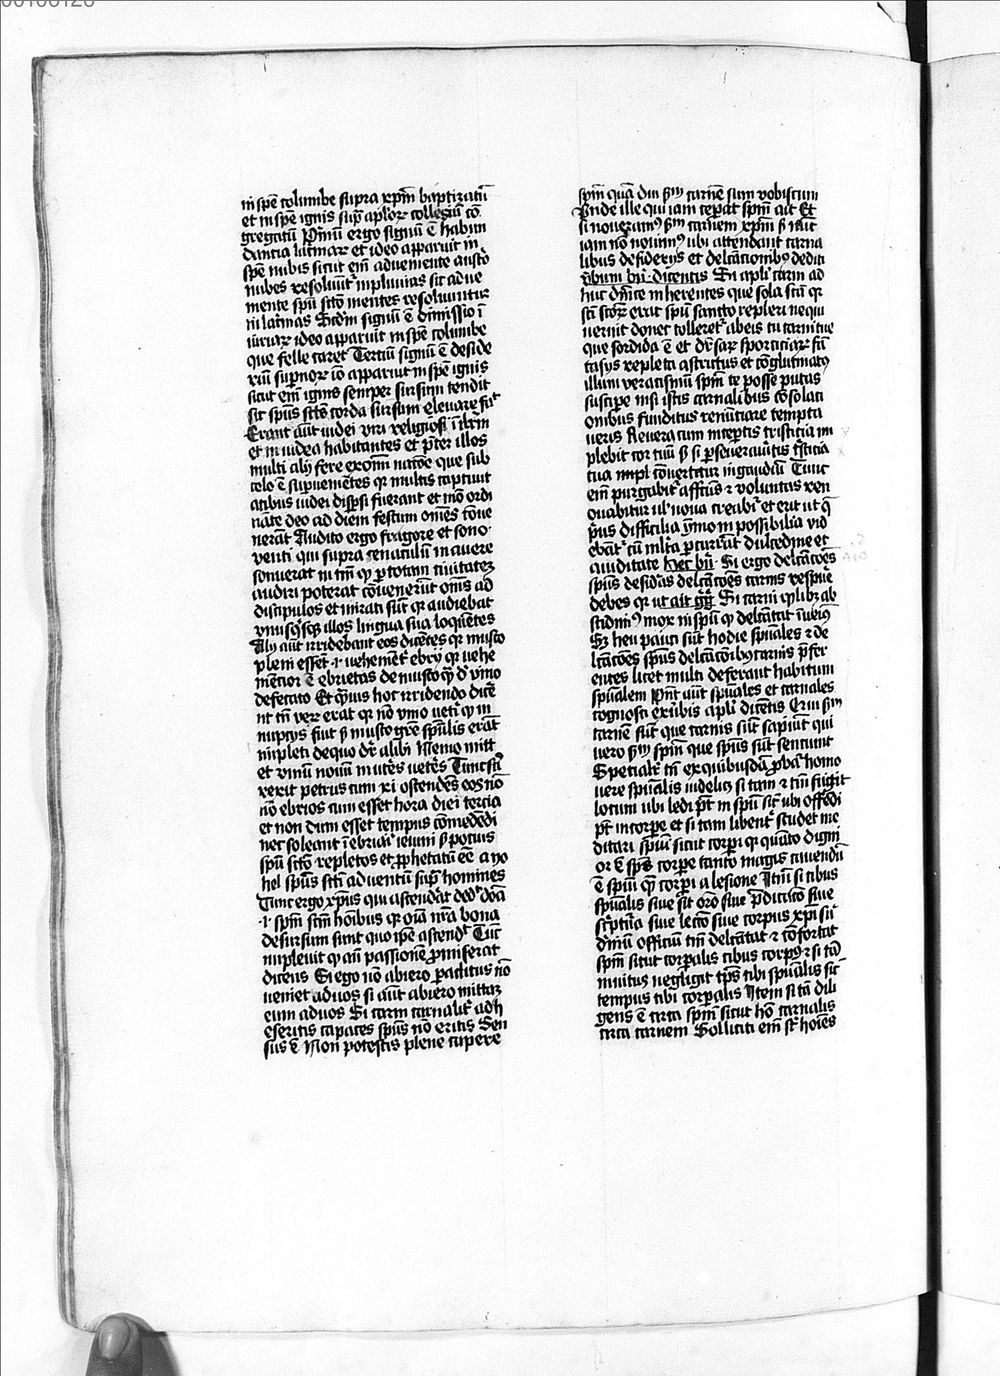 in spē columbe supra xpm̄ baptizatū
et in spē ignis suꝑ aploꝝ collegiū cō
gregatū Primū ergo signū ē habun
dantia lacrimaꝝ et ideo apparuit in
spē nubis sicut em̄ adueniente austro
nubes resoluūt̄ in pluuias sic adue
niente spū scto mentes resoluuntur
in lacrimas Scdm̄ signū ē dimissio ī
iuriaꝝ ideo apparuit in spē columbe
que felle caret Tertiū signū ē deside
riū suꝑnoꝝ iō apparuit in spē ignis
sicut em̄ ignis semper sursum tendit
sic spūs scts corda sursum eleuare fac̄
Erant aūt iudei viri religiosi ī ihrlm̄
et in iudea habitantes et pter illos
multi alij fere ex om̄i natōe que sub
celo ē suꝑueniētes qr multis captiuit
atibus iudei disꝑsi fuerant et mō ordi
nāte deo ad diem festum om̄es cōue
nerāt Audito ergo fragore et sono
venti qui supra cenaculū in auere
sonuerat in tm̄ qꝫ ꝑ totam ciuitatez
audiri poterat cōuenerūt om̄s ad
discipulos et mirati sūt qr audiebāt
vnusqꝫsqꝫ illos lingua sua loquētes
Alij aūt irridebant eos dicētes qr musto
pleni essēt .i. vehemēt̄ ebrij qr vehe
mētior ē ebrietas de musto qꝫ d vino
defecato Et qꝫuis hoc irridendo dicē
nt tn̄ verū erat qr nō vino veti qꝫ in
nuptijs fuit sꝫ musto grē spūalis erāt
impleti de quo dr̄ alibi Nemo mitt
et vinū nouū in utēs veteres Tunc sur
rexit petrus cum xi ostendēs eos nō
nō ebrios cum esset hora diei tercia
et non dum esset tempus comedēdi
nec soleant īebriari ieiuni sꝫ potius
spū scto repletos et ꝓphetatū eē a io
hel spūs scti aduentū suꝑ homines
Tunc ergo xpus qui ascenderat dedit dona
.i. spm̄ scm̄ hoībus qr oīa nr̄a bona
desursum sunt quo ipē ascendit Tūc
impleuit qꝫ an̄ passionē ꝓmiserat
dicens Si ego nō abiero paraclitus nō
veniet ad uos si aūt abiero mittaꝫ
eum ad uos Si carni carnalit̄ adh
eseritis capaces spūs nō eritis Sen
sus ē Non potestis plene capere
spm̄ quā diu scdm̄ carnē sum vobiscum
Vnde ille qui iam ceperat spm̄ ait Et
si nouerimus scdm̄ carnem xpm̄ sꝫ nūc
iam nō nouimꝰ ubi attendant carna
libus desiderijs et delectationibꝰ dediti
verbum bn̄. dicentis Si apli carni ad
huc dn̄ice inherentes que sola scta qr
scti sctoꝝ erat spū sancto repleri nequi
uerunt donec tolleret̄ ab eis tu carni tue
que sordida ē et diuersaꝝ spurciciaꝝ fan
tasijs repleta astrictus et cōglutinatꝰ
illum veracissimū spm̄ te posse putas
suscipe nisi istis carnalibus cōsolati
onibus funditus renūtiare tempta
ueris Reuera cum inceptis tristitia im
plebit cor tuū sꝫ si ꝑseuerauītis tristicia
tua conuertetur in gaudiū Tunc
em̄ purgabit̄ affectus et voluntas ren
ouabitur ul' noua creabit̄ et erit ut qe
prius difficilia ymo impossibilia vid
ebant̄ cū multa ꝑcurrāt dulcedine et
auiditate Hec bn̄. Si ergo delectatōes
spūs desideras delectatōes carnis respuē
debes qr ut ait grg Si carni qꝫ libꝫ ab
scidimꝰ mox in spū qꝫ delectat ī ueniꝰ
Sꝫ heu pauci sūt hodie spūales et de
lectatōes spūs delectatōibꝰ carnis prefer
entes licet multi deferant habitum
spūalem Pn̄t aūt spūales et carnales
cognosci ex ūbis apli dicētis Qui scdm̄
carnē sūt que carnis sūt sapiunt qui
uero scdm̄ spm̄ que spūs sūt sentiunt
Specialit̄ tn̄ ex quibusdā ꝓbat̄ homo
uere spūalis uidelicꝫ si tam et tm̄ fugit
locum ubi ledi pōt in spū sic̄ ubi offēdi
pōt in corpe et si tam libent̄ studet me
ditari spūm sicut corpi qr quāto digni
or ē spūs corpe tanto magis cauendū
ē spūi qꝫ corpi a lesione Itm̄ si cibus
spūalis siue sit orō siue predicatio siue
scriptura siue lectō siue corpus xpi siue
diuinū officiū tm̄ delectat et cōfortat
spm̄ sicut corporalis cibus corpꝰ et si tā
inuitus negligit tps cibi spūalis sic
tempus cibi corporalis Item si tā dili
gens ē circa spm̄ sicut hō carnalis
circa carnem Solliciti em̄ st hoīes